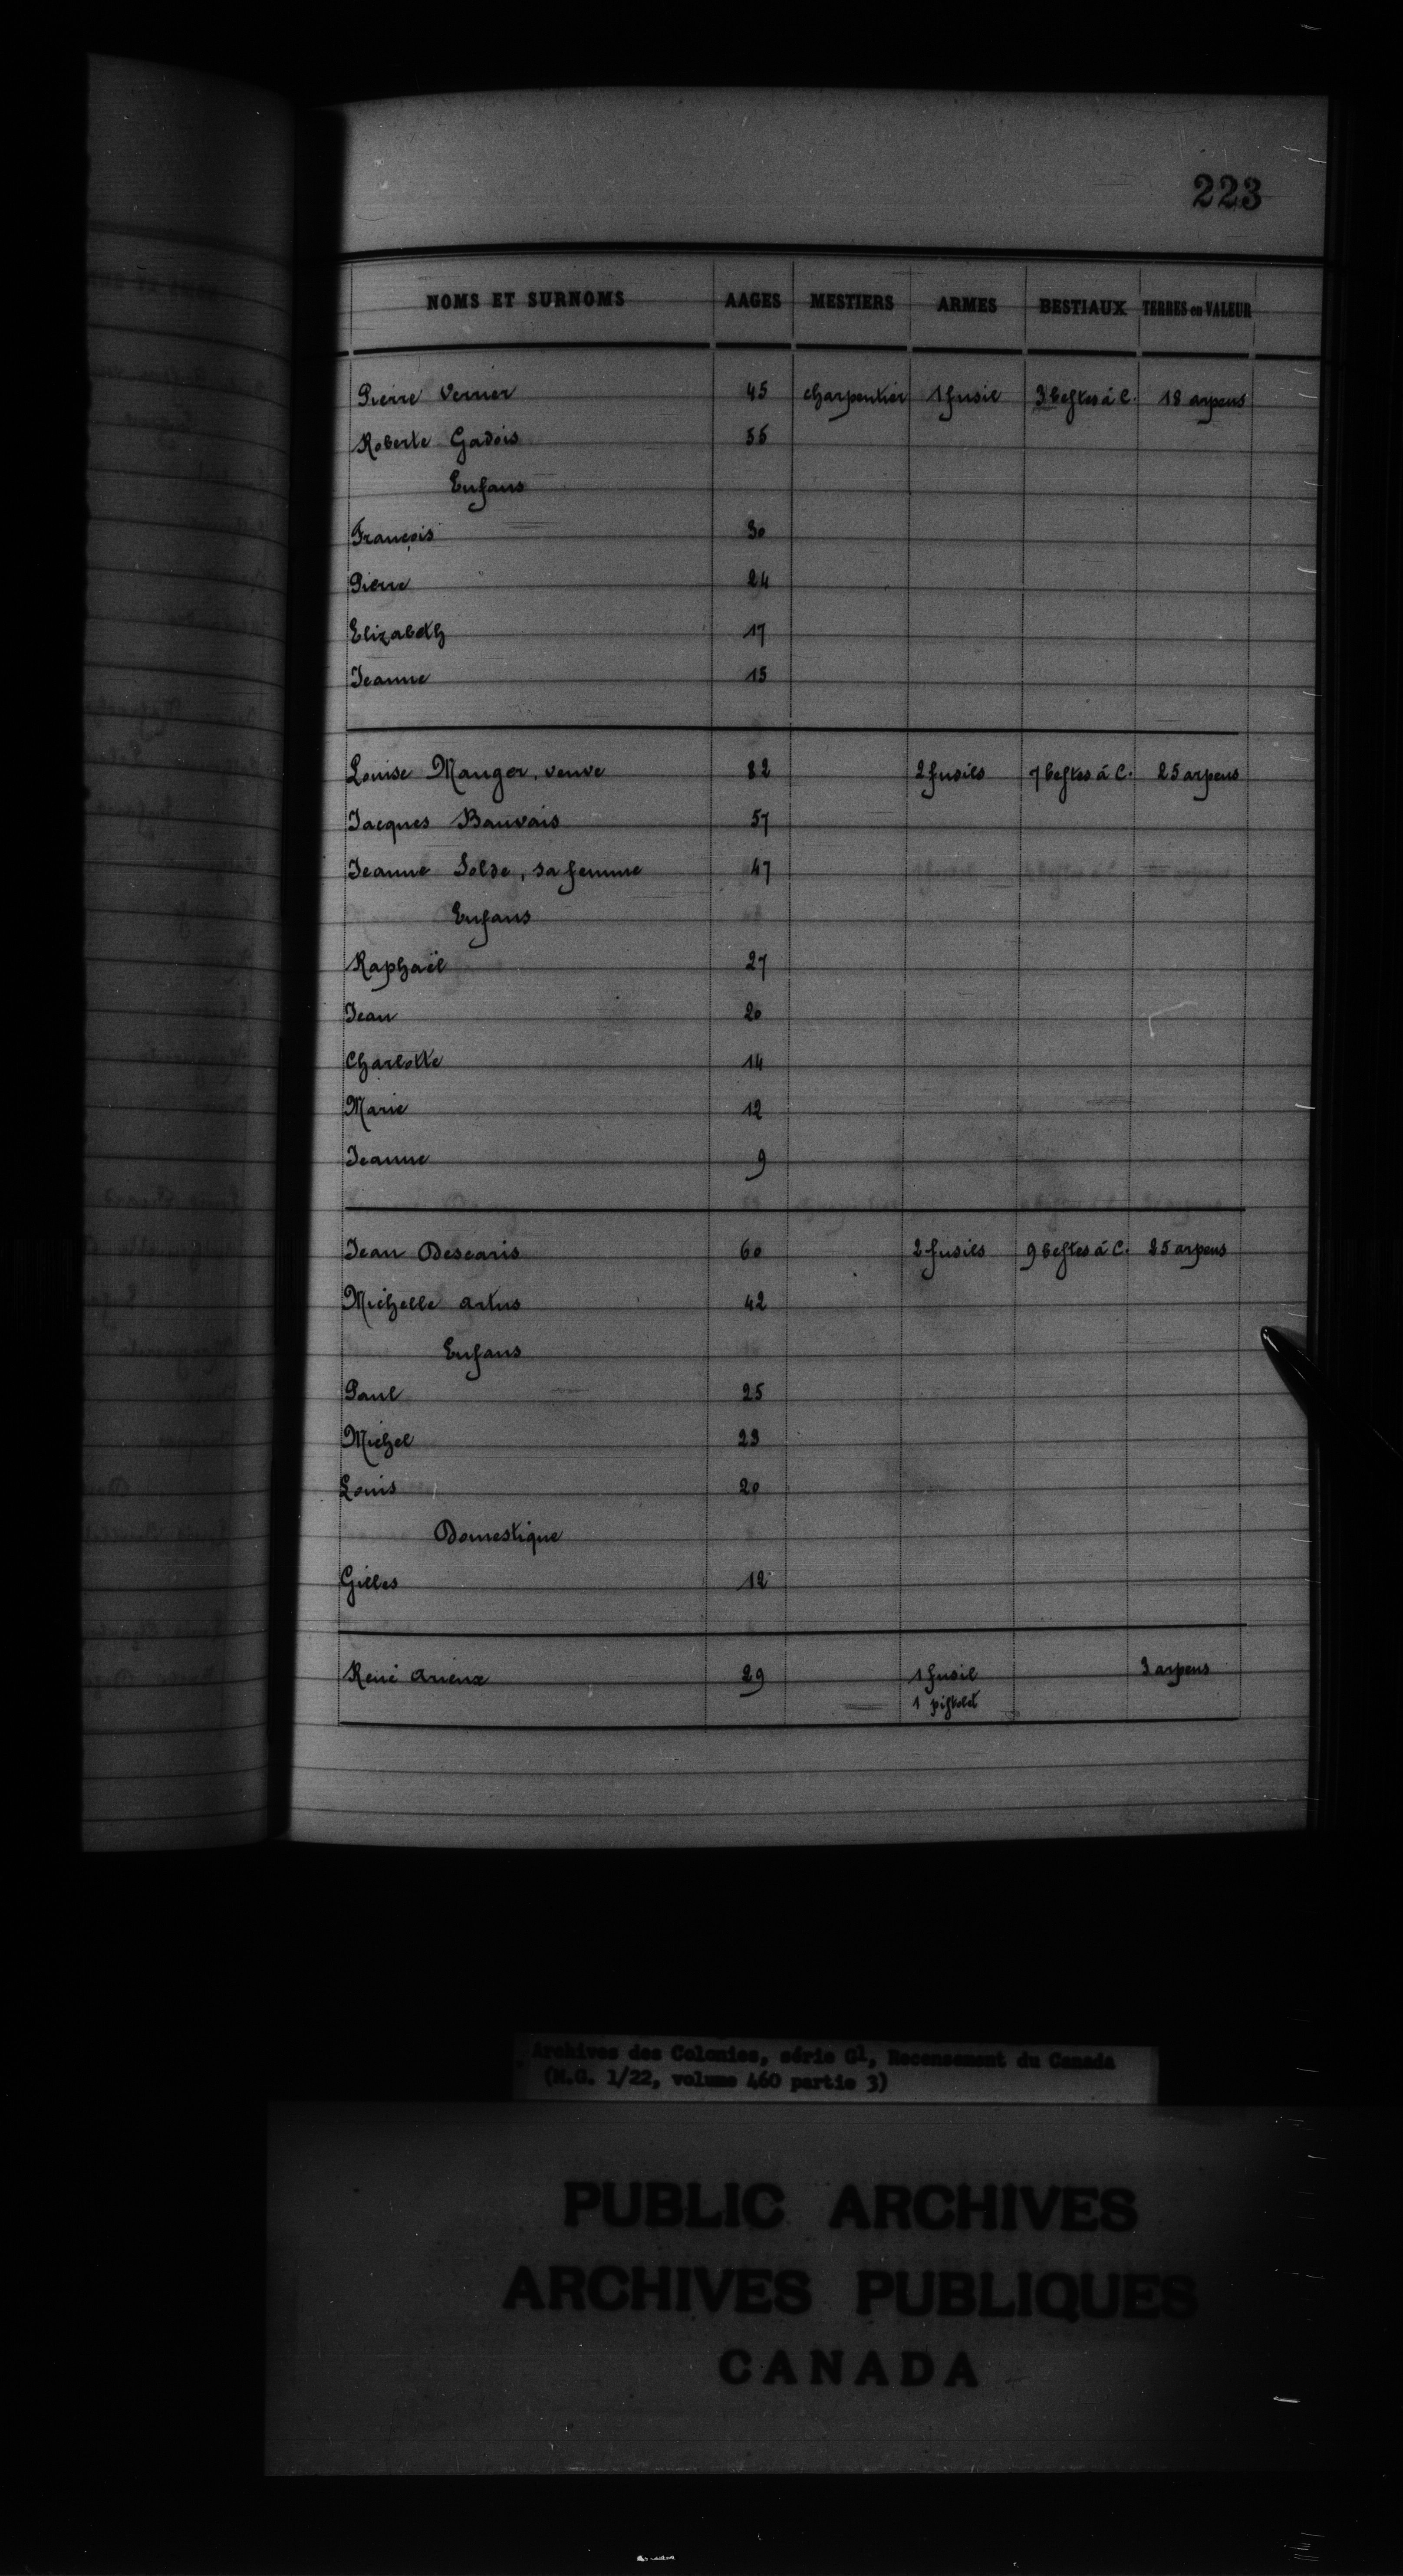 223
NOMS ET SURNOMS AAGES MESTIERS ARMES BESTIAUX TERRES en VALEUR
Pierre Verrier 45 charpentier 1 fusil 3 bestes à c. 18 arpens
Roberte Gadois 55
Enfans
François 30
Pierre 24
Elizabeth 17
Jeanne 15
Louise Mauger, veuve 82 2 fusils 7 bestes à C. 25 arpens
Jacques Bauvais 57
Jeanne Solde, sa femme 47
Enfans
Raphaël 27
Jean 20
Charlotte 14
Marie 12
Jeanne 9
Jean Descaris 60 2 fusils 9 bestes à C. 25 arpens
Michelle Artus 42
Enfans
Paul 25
Michel 23
Louis 20
Domestique
Gilles 12
René Arieux 29 1 fusil 3 arpens
1 pistolet
Archives des Colonies, série G1, Recensement du Canada
(M.G. 1/22, volume 460 partie 3)
PUBLIC ARCHIVES
ARCHIVES PUBLIQUES
CANADA